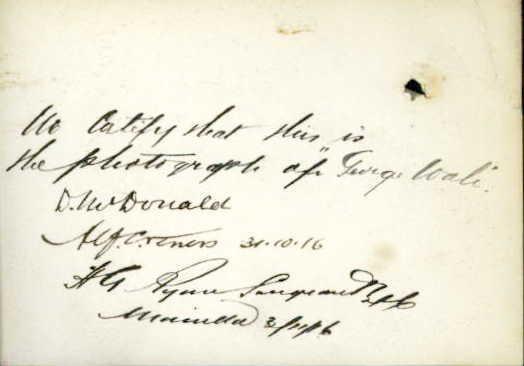 We Certify that this is
the photograph of "George Wah".
D. McDonald
Alf. C. 31.10.16
H G Ryan Sergeant